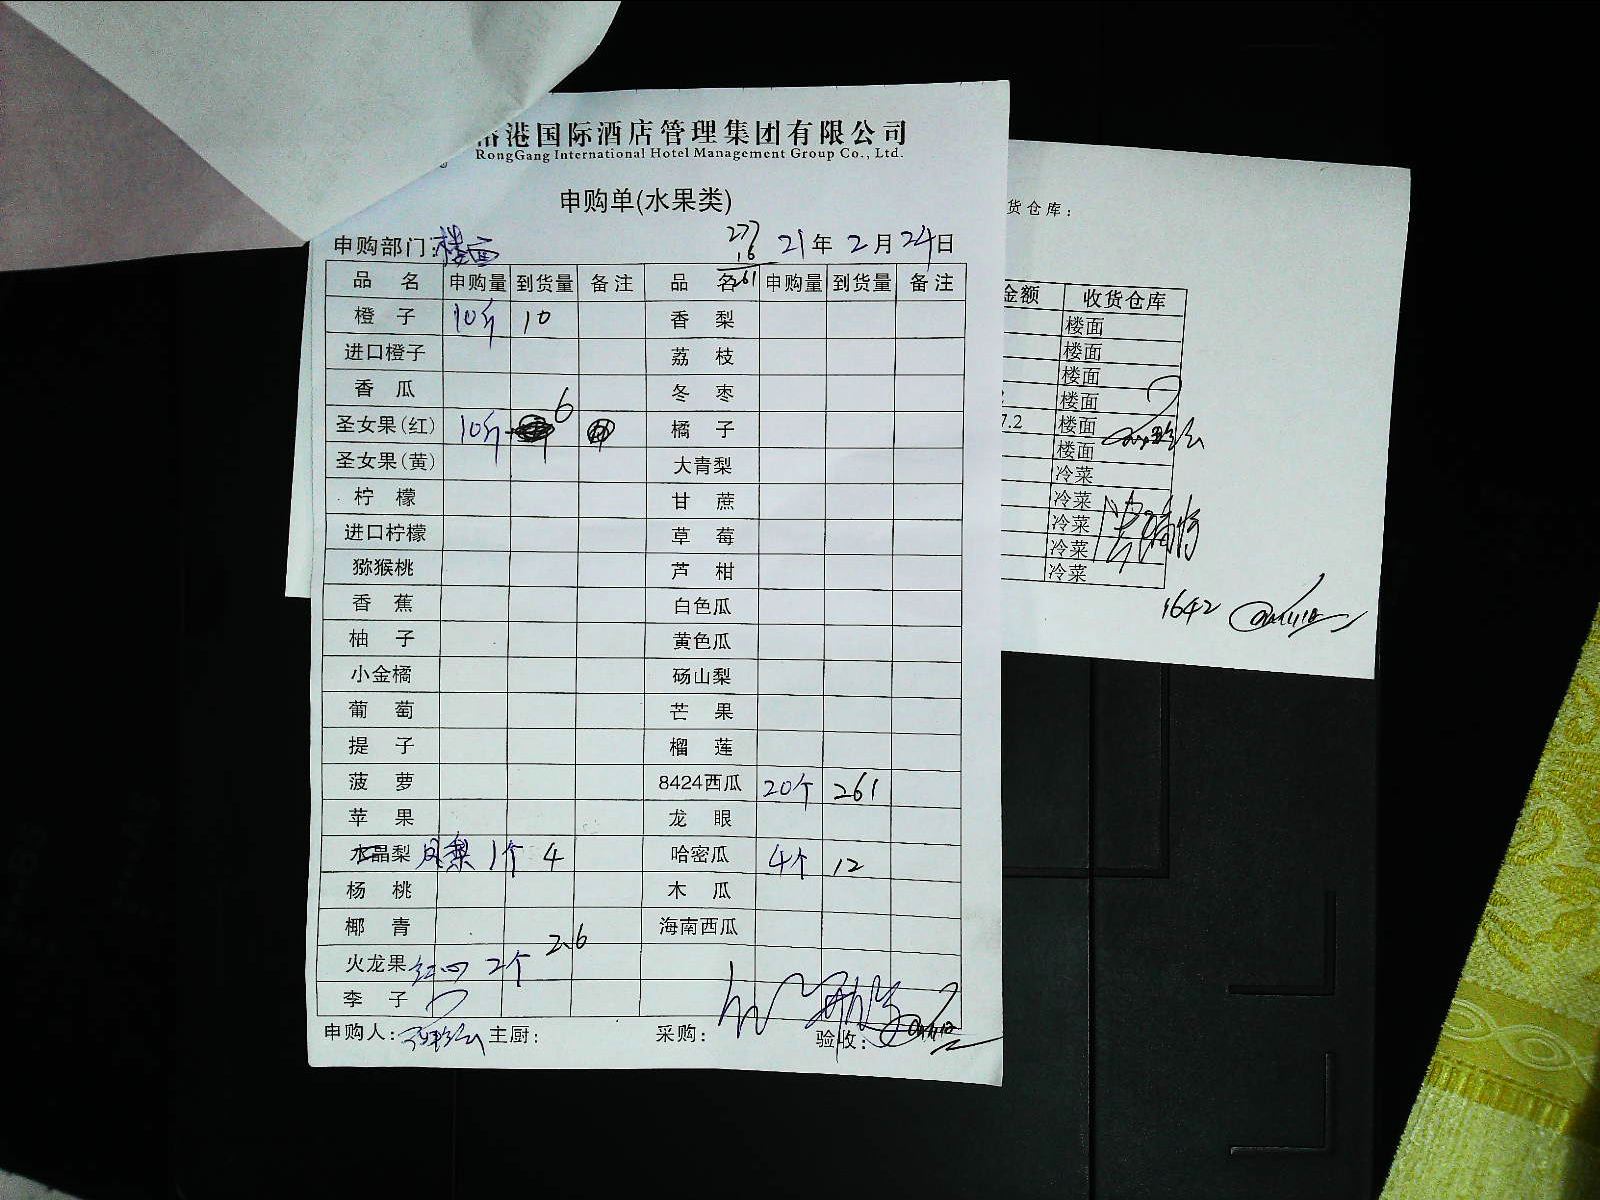 港国际酒店管理集团有限公司
RongGang International Hotel Management Group Co., Ltd.
申购单(水果类)
277
16
261
申购部门:楼面 21年2月24日
品 名 申购量 到货量 备注 品 名 申购量 到货量 备注
橙 子 10斤 10 香 梨
进口橙子 荔 枝
香 瓜 冬 枣
圣女果(红) 10斤 6 橘 子
圣女果(黄) 大青梨
柠 檬 甘 蔗
进口柠檬 草 莓
猕猴桃 芦 柑
香 蕉 白色瓜
柚 子 黄色瓜
小金橘 砀山梨
葡 萄 芒 果
提 子 榴 莲
菠 萝 8424西瓜 20个 261
苹 果 龙 眼
水晶梨 凤梨 1个 4 哈密瓜 4个 12
杨 桃 木 瓜
椰 青 海南西瓜
火龙果 红心 2个 2.6
李 子
申购人: 主厨: 采购: 验收:
货仓库:
金额 收货仓库
楼面
楼面
楼面
楼面
7.2 楼面
楼面
冷菜
冷菜
冷菜
冷菜
冷菜
1642